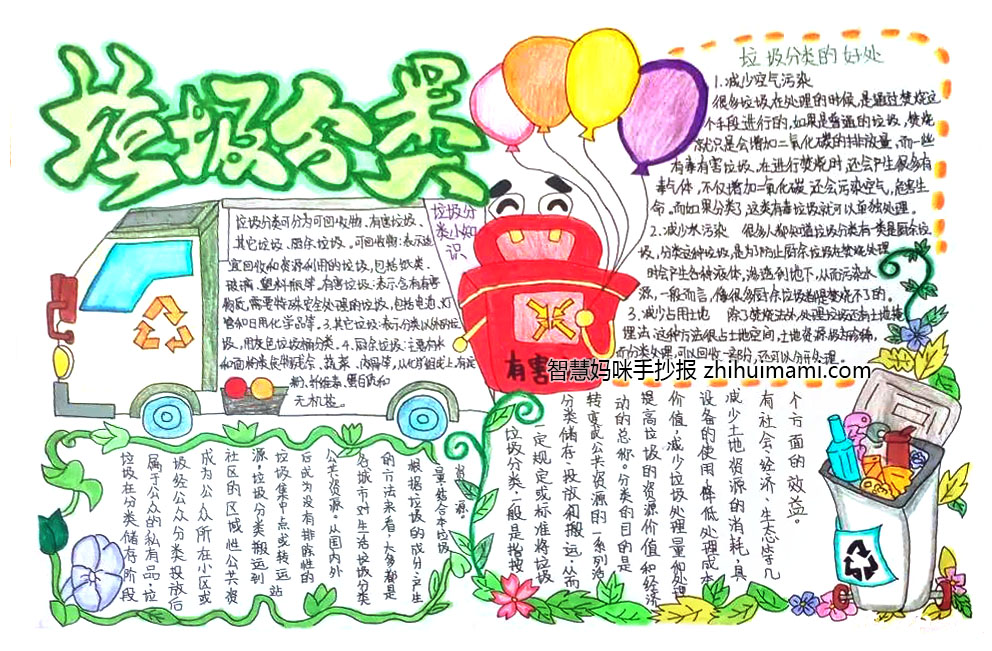 垃圾分类
垃圾分
类小知
识
垃圾分类可分为可回收物、有害垃圾、
其它垃圾、厨余垃圾。可回收物:表示适
宜回收和资源利用的垃圾,包括纸类、
玻璃、塑料瓶等。有害垃圾:表示含有有害
物质,需要特殊安全处理的垃圾,包括电池、灯
管和日用化学品等。3、其它垃圾:表示分类以外的垃
圾,用灰色垃圾桶分类。4、厨余垃圾:主要有米
和面粉类食物残余、蔬菜、肉骨等,从化学组成上,有淀
粉、纤维素、蛋白质和
无机盐。
有害
垃圾分类的好处
1.减少空气污染
很多垃圾在处理的时候,是通过焚烧这
个手段进行的,如果是普通的垃圾,焚烧
只是会增加二氧化碳的排放量,而一些
有毒有害垃圾,在进行焚烧时,还会产生很多有
毒气体,不仅增加二氧化碳,还会污染空气,危害生
命。而如果分类了,这类有毒垃圾就可以单独处理。
2.减少水污染 很多人都知道垃圾分类有一类是厨余垃
圾,分类这种垃圾,是为防止厨余垃圾在焚烧处理
时会产生各种液体,渗透到地下,从而污染水
源,一般而言,像很多厨余垃圾都是焚烧不了的。
3、减少占用土地 除了焚烧法外处理垃圾还有土地掩
埋法,这种方法很占土地空间,土地资源极为稀缺,
而分类处理,可以回收一部分,还可以分开处理。
智慧妈咪手抄报 zhihuimami.com
垃圾分类,一般是指按
一定规定或标准将垃圾
分类储存、投放和搬运,从而
转变成公共资源的一系列活
动的总称。分类的目的是
提高垃圾的资源价值和经济
价值,减少垃圾处理量和处理
设备的使用,降低处理成本,
减少土地资源的消耗,具
有社会、经济、生态等几
个方面的效益。
垃圾在分类储存阶段
属于公众的私有品,垃
圾经公众分类投放后
成为公众所在小区或
社区的区域性公共资
源,垃圾分类搬运到
垃圾集中点或转运站
后成为没有排除性的
公共资源。从国内外
各城市对生活垃圾分类
的方法来看,大多都是
根据垃圾的成分、产生
量,结合本地垃圾